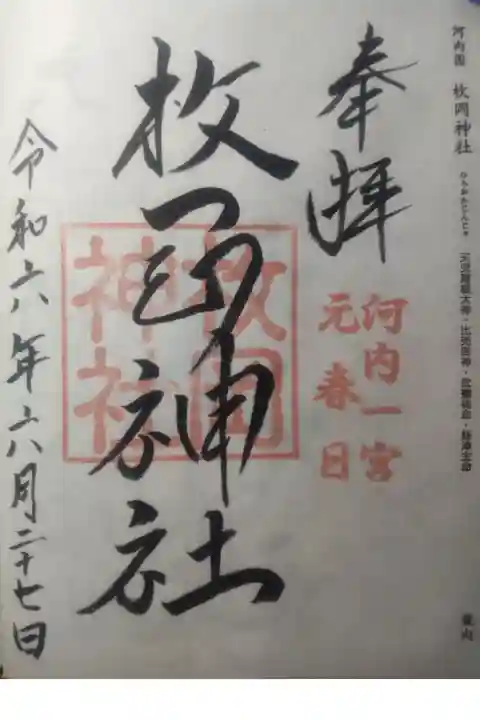 河内國 枚岡神社 ひらおかじんじゃ 天児屋根大神・比売御神・武甕槌命・経津主命
奉拝
河内一宮
元春日
枚岡神社
枚岡
神社
令和六年六月二十七日